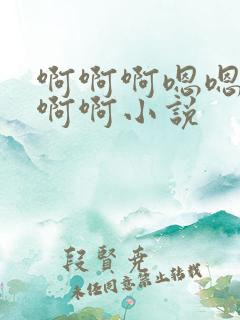 啊啊啊嗯嗯
啊啊小说
段賢尭
未经同意禁止转载